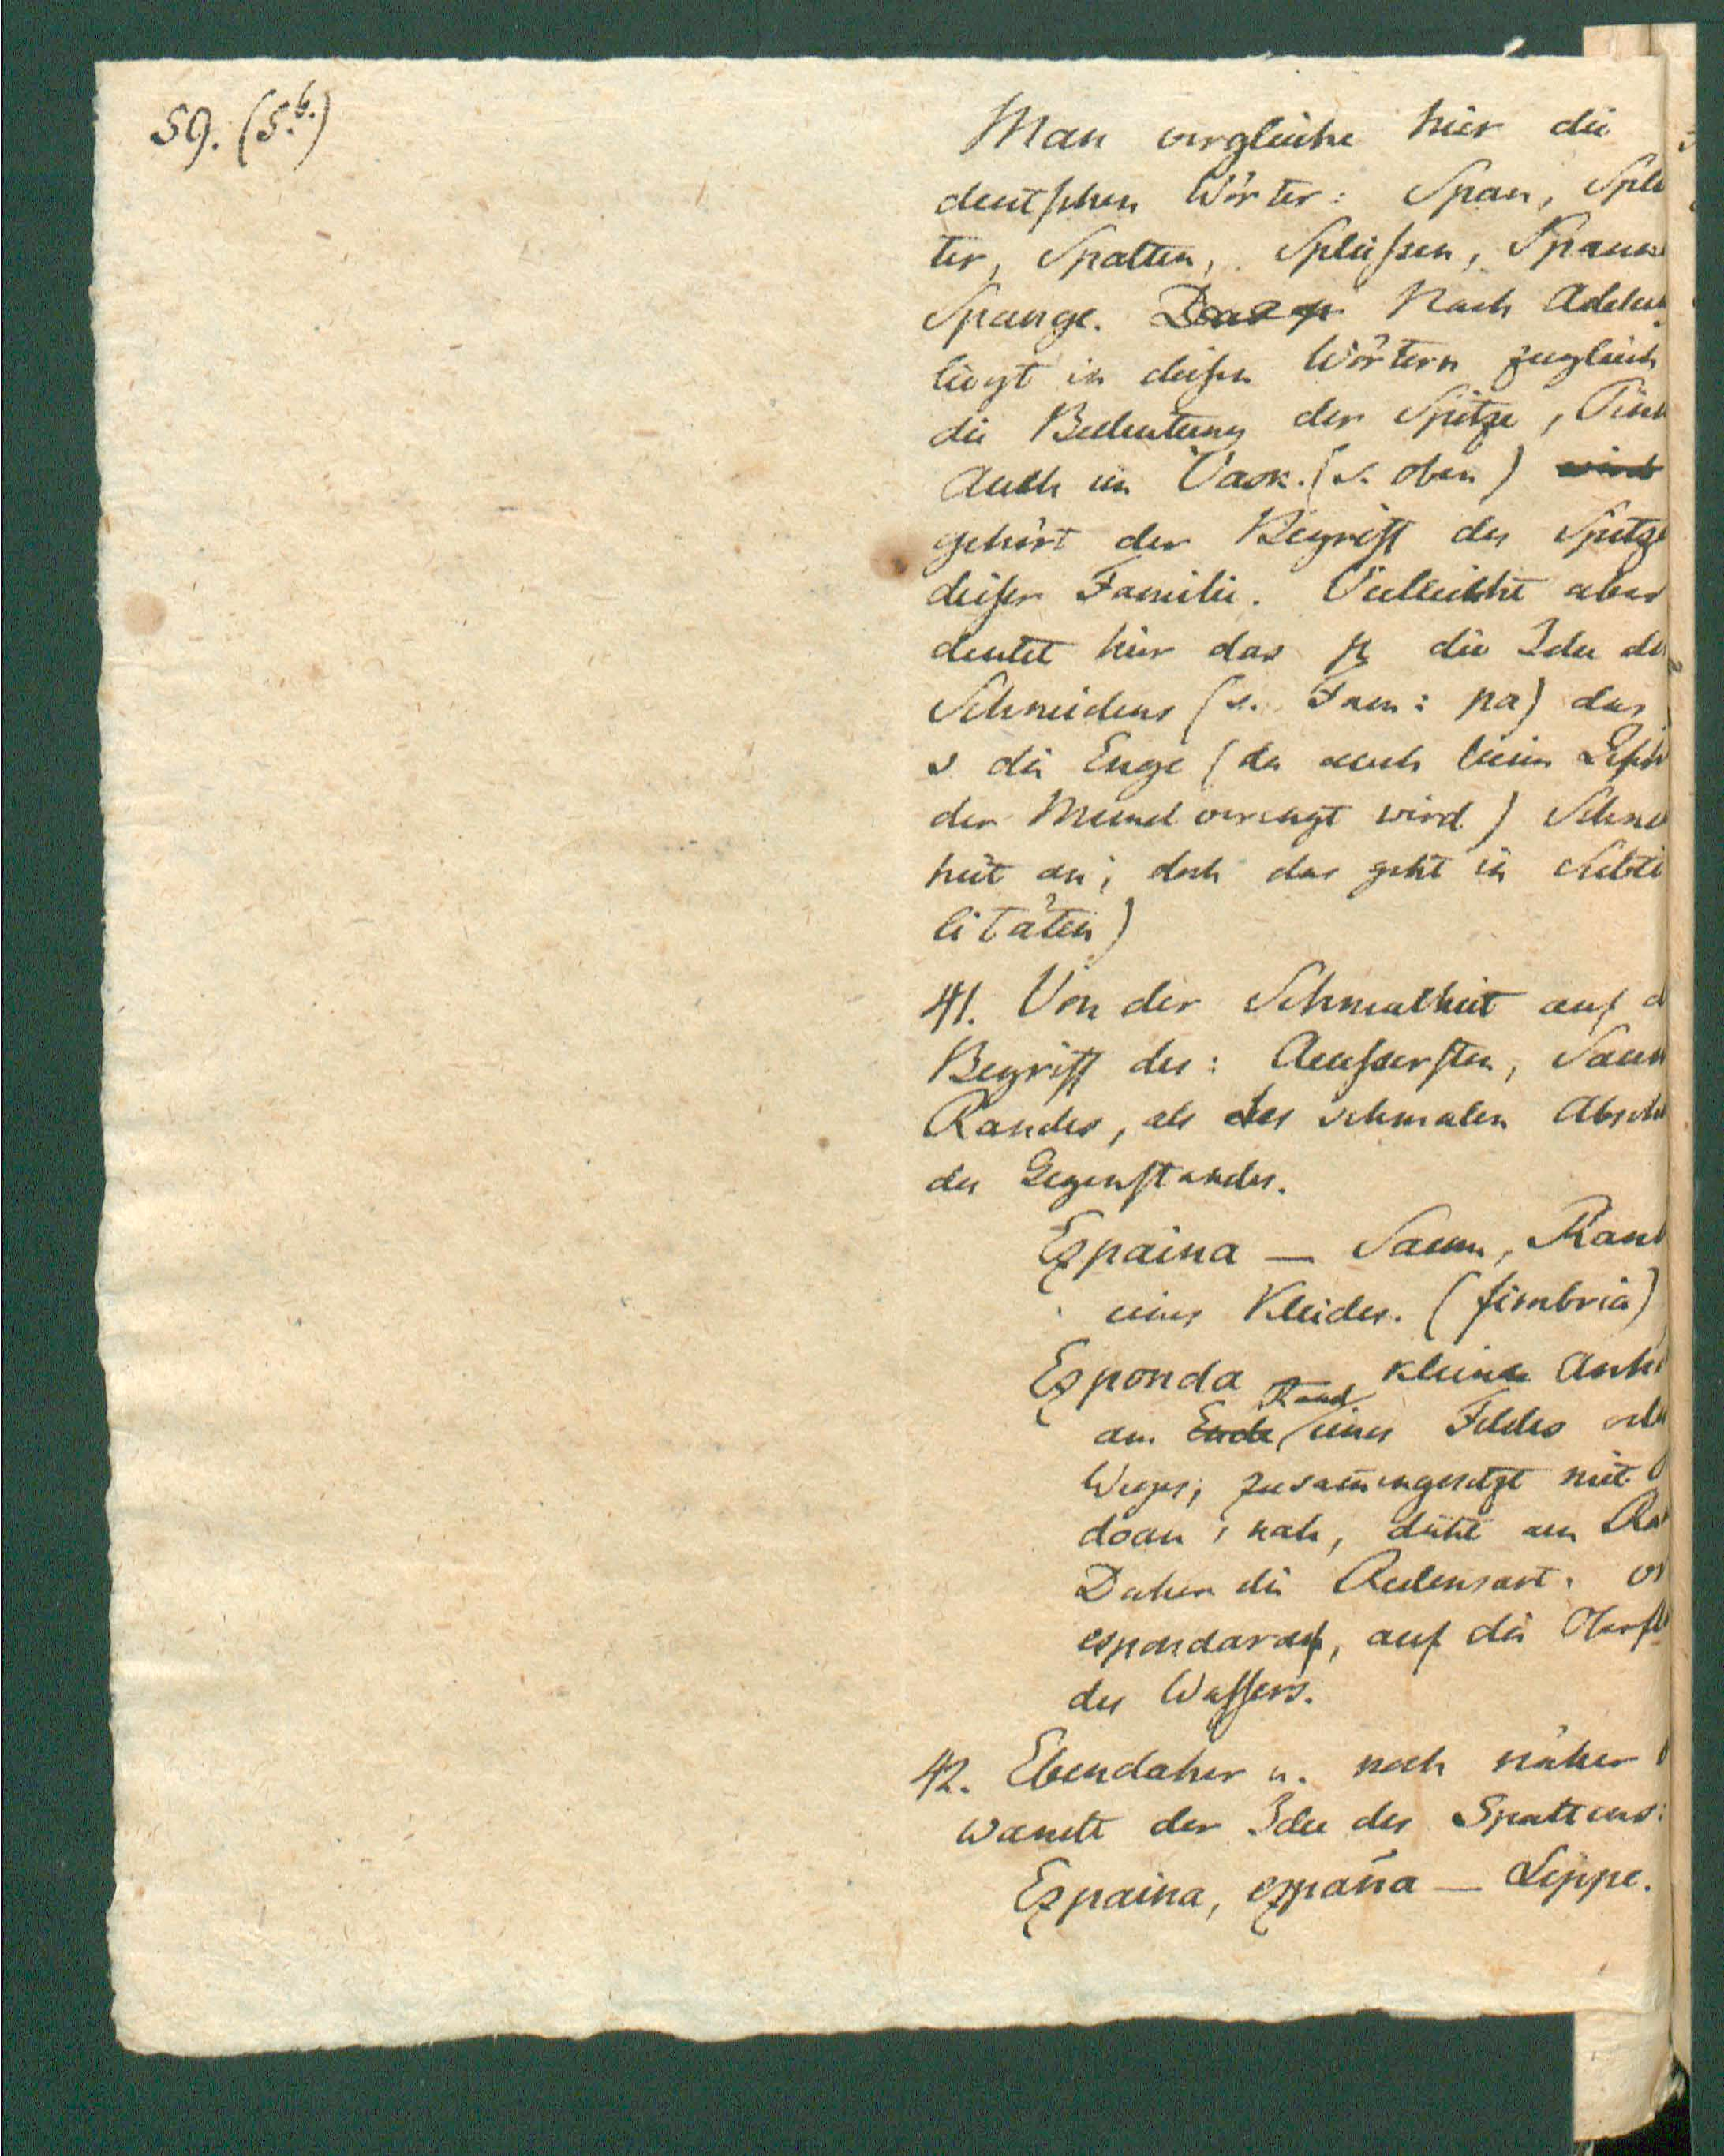 59. (5.b.)
Man vergleiche hier die
deutschen Wörter: Span, Spli
ter, Spalten, Spleißen, Spann
Spange. Nach Adelun
liegt in diesen Wörtern zugleich
die Bedeutung der Spitze,
Auch im Vask. (s. oben) wird
gehört der Begriff der Spitze
dieser Familie. Vielleicht aber
deutet hier das p die Idee de
Schneidens (s. Fam: pa) das
s die Enge (da auch beim
der Mund verengt wird)
heit an; doch das geht in Subti
litäten)
41. Von der Schmalheit auf d
Begriff des: Aeussersten, Saum
Randes, als des schmalen Absch
des Gegenstandes.
Ezpaina — Saum, Rand
eines Kleides. (fimbria)
Ezponda kleine Anh
am Ende Rand eines Feldes ode
Weges; zusammengesetzt mit
doan, nah, dicht am Ra
Daher die Redensart:
auf die Oberfl
des Wassers.
42. Ebendaher u. noch näher
wandt der Idee des Spaltens:
Ezpaina, ezpaña — Lippe.